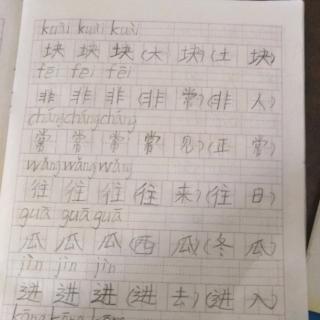 kuài kuài kuài
块 块 块 (大 块) (土 块)
fēi fēi fēi
非 非 非 (非 常) (非 人)
cháng cháng cháng
常 常 常 (常 见) (正 常)
wǎng wǎng wǎng
往 往 往 (往 来) (往 日)
guā guā guā
瓜 瓜 瓜 (西 瓜) (冬 瓜)
jìn jìn jìn
进 进 进 (进 去) (进 入)